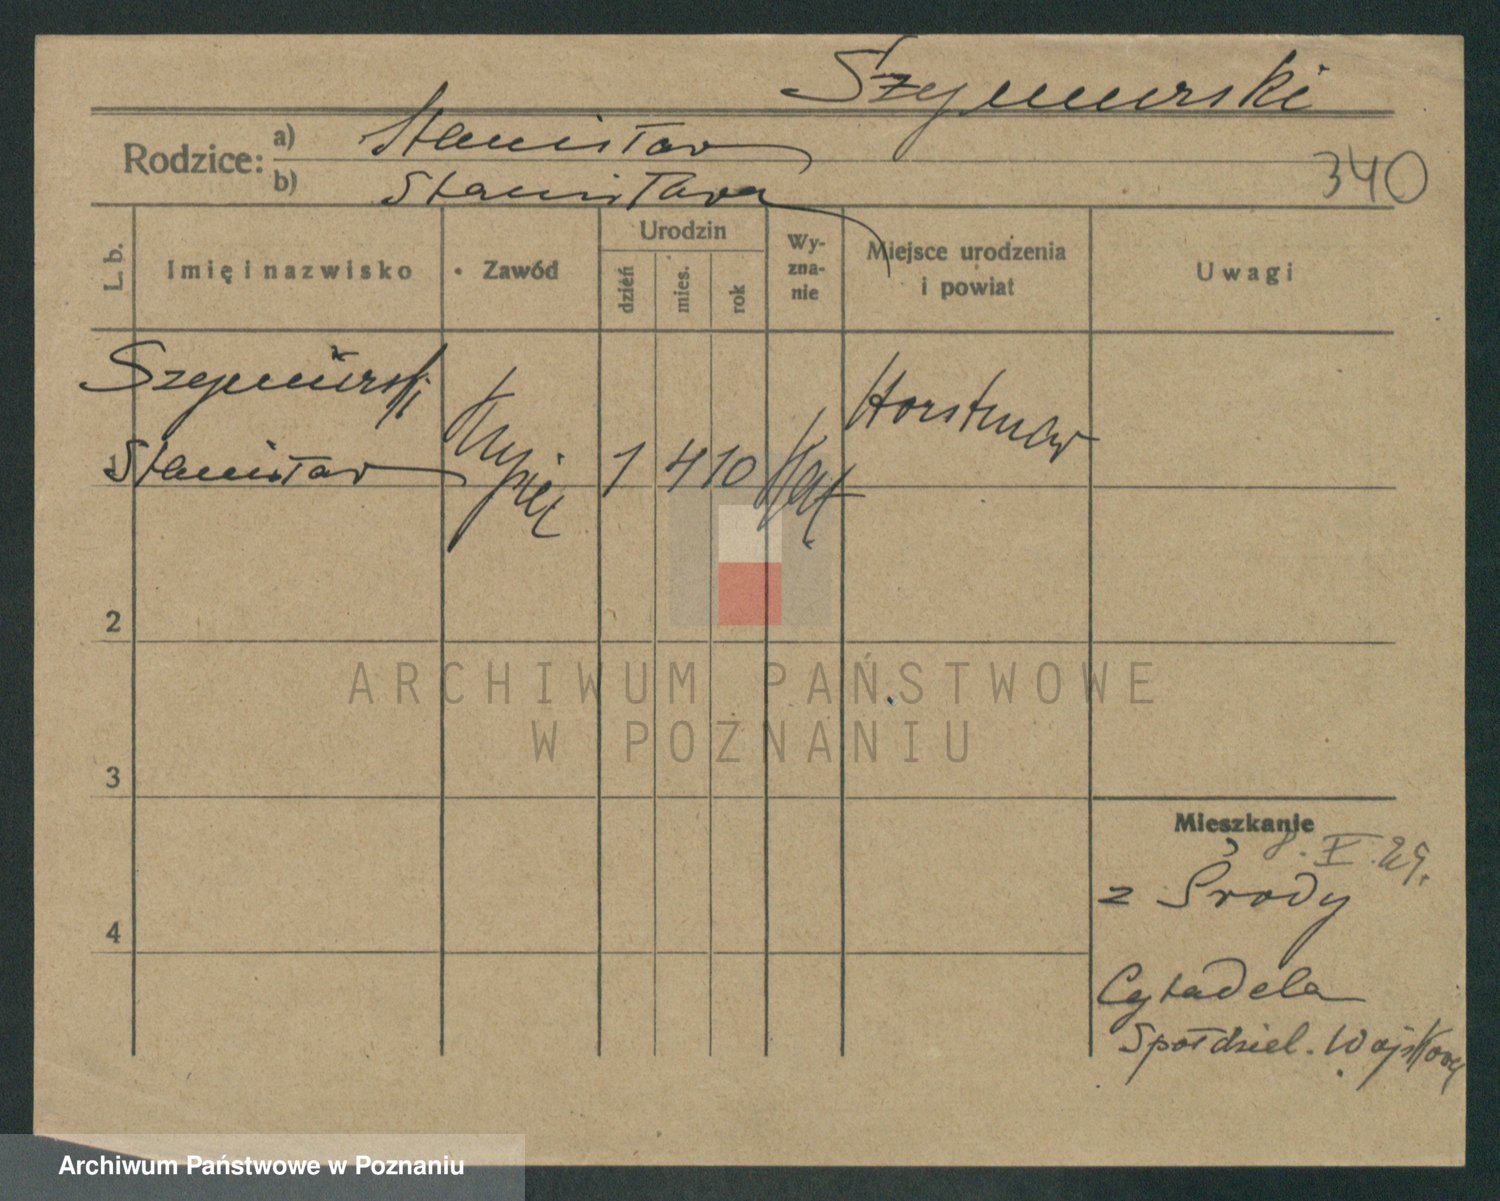 Szymurski
Rodzice: a) Stanisław
b) Stanisława
340
L. b.
Imię i nazwisko
Zawód
Urodzin
dzień
mies.
rok
Wy-
zna-
nie
Miejsce urodzenia
i powiat
Uwagi
Szymurski
Stanisław
1 4 10
Kat
2
3
4
Mieszkanie
8. X. 29.
z Środy
Cytadela
Spółdziel. Wojskowa
ARCHIWUM PAŃSTWOWE
W POZNANIU
Archiwum Państwowe w Poznaniu